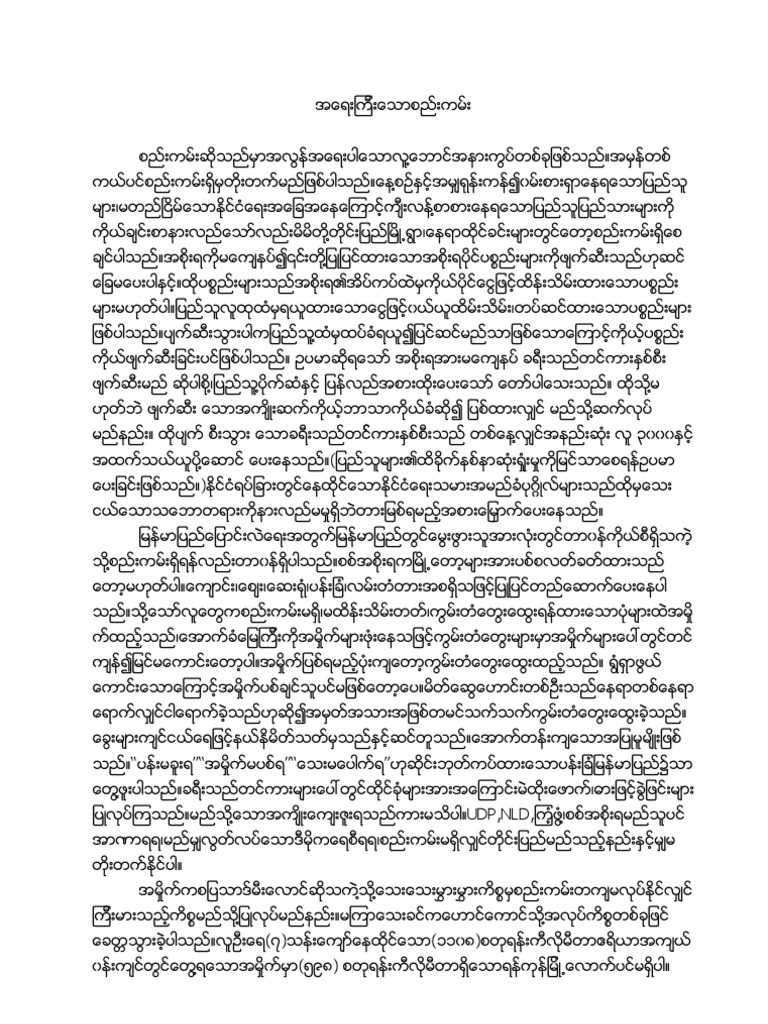 အရေးကြီးသောစည်းကမ်း
စည်းကမ်းဆိုသည်မှာအလွန်အရေးပါသောလူ့ဘောင်အနားကွပ်တစ်ခုဖြစ်သည်။အမှန်တစ်
ကယ်ပင်စည်းကမ်းရှိမှတိုးတက်မည်ဖြစ်ပါသည်။နေ့စဉ်နှင့်အမျှရုန်းကန်၍၀မ်းစားရှာနေရသောပြည်သူ
များ၊မတည်ငြိမ်သောနိုင်ငံရေးအခြေအနေကြောင့်ကြီးလန့်စာစားနေရသောပြည်သူပြည်သားများကို
ကိုယ်ချင်းစာနားလည်သော်လည်းမိမိတို့တိုင်းပြည်မြို့ရွာ၊နေရာထိုင်ခင်းများတွင်တော့စည်းကမ်းရှိစေ
ချင်ပါသည်။အစိုးရကိုမကျေနပ်၍၎င်းတို့ပြုပြင်ထားသောအစိုးရပိုင်ပစ္စည်းများကိုဖျက်ဆီးသည်ဟုဆင်
ခြေမပေးပါနှင့်။ထိုပစ္စည်းများသည်အစိုးရ၏အိပ်ကပ်ထဲမှကိုယ်ပိုင်ငွေဖြင့်ထိန်းသိမ်းထားသောပစ္စည်း
များမဟုတ်ပါ။ပြည်သူလူထုထံမှရယူထားသောငွေဖြင့်၀ယ်ယူထိမ်းသိမ်း၊တပ်ဆင်ထားသောပစ္စည်းများ
ဖြစ်ပါသည်။ပျက်ဆီးသွားပါကပြည်သူ့ထံမှထပ်ခံရယူ၍ပြင်ဆင်မည်သာဖြစ်သောကြောင့်ကိုယ့်ပစ္စည်း
ကိုယ်ဖျက်ဆီးခြင်းပင်ဖြစ်ပါသည်။ ဥပမာဆိုရသော် အစိုးရအားမကျေနပ် ခရီးသည်တင်ကားနှစ်စီး
ဖျက်ဆီးမည် ဆိုပါစို့၊ပြည်သူ့ပိုက်ဆံနှင့် ပြန်လည်အစားထိုးပေးသော် တော်ပါသေးသည်။ ထိုသို့မ
ဟုတ်ဘဲ ဖျက်ဆီး သောအကျိုးဆက်ကိုယ့်ဘာသာကိုယ်ခံဆို၍ ပြစ်ထားလျှင် မည်သို့ဆက်လုပ်
မည်နည်း။ ထိုပျက် စီးသွား သောခရီးသည်တင်ကားနှစ်စီးသည် တစ်နေ့လျှင်အနည်းဆုံး လူ ၃၀၀၀နှင့်
အထက်သယ်ယူပို့ဆောင် ပေးနေသည်။(ပြည်သူများ၏ထိခိုက်နစ်နာဆုံးရှုံးမှုကိုမြင်သာစေရန်ဥပမာ
ပေးခြင်းဖြစ်သည်။)နိုင်ငံရပ်ခြားတွင်နေထိုင်သောနိုင်ငံရေးသမားအမည်ခံပုဂ္ဂိုလ်များသည်ထိုမှသေး
ငယ်သောသဘောတရားကိုနားလည်မမှုရှိဘဲတားမြစ်ရမည့်အစားမြှောက်ပေးနေသည်။
မြန်မာပြည်ပြောင်းလဲရေးအတွက်မြန်မာပြည်တွင်မွေးဖွားသူအားလုံးတွင်တာ၀န်ကိုယ်စီရှိသကဲ့
သို့စည်းကမ်းရှိရန်လည်းတာ၀န်ရှိပါသည်။စစ်အစိုးရကမြို့တော့များအားပစ်စလတ်ခတ်ထားသည်
တော့မဟုတ်ပါ။ကျောင်း၊ဈေး၊ဆေးရုံ၊ပန်းခြံ၊လမ်းတံတားအစရှိသဖြင့်ပြုပြင်တည်ဆောက်ပေးနေပါ
သည်။သို့သော်လူတွေကစည်းကမ်းမရှိ၊မထိန်းသိမ်းတတ်၊ကွမ်းတံတွေးထွေးရန်ထားသောပုံများထဲအမှို
က်ထည့်သည်၊အောက်ခံမြေကြီးကိုအမှိုက်များဖုံးနေသဖြင့်ကွမ်းတံတွေးများမှာအမှိုက်များပေါ်တွင်တင်
ကျန်၍မြင်မကောင်းတော့ပါ။အမှိုက်ပြစ်ရမည့်ပုံးကျတော့ကွမ်းတံတွေးထွေးထည့်သည်။ ရွံရှာဖွယ်
ကောင်းသောကြောင့်အမှိုက်ပစ်ချင်သူပင်မဖြစ်တော့ပေ။မိတ်ဆွေဟောင်းတစ်ဦးသည်နေရာတစ်နေရာ
ရောက်လျှင်ငါရောက်ခဲ့သည်ဟုဆို၍အမှတ်အသားအဖြစ်တမင်သက်သက်ကွမ်းတံတွေးထွေးခဲ့သည်။
ခွေးများကျင်ငယ်ရေဖြင့်နယ်နိမိတ်သတ်မှသည်နှင့်ဆင်တူသည်။အောက်တန်းကျသောအပြုမူမျိုးဖြစ်
သည်။“ပန်းမခူးရ”“အမှိုက်မပစ်ရ”“သေးမပေါက်ရ”ဟုဆိုင်းဘုတ်ကပ်ထားသောပန်းခြံမြန်မာပြည်၌သာ
တွေ့ဖူးပါသည်။ခရီးသည်တင်ကားများပေါ်တွင်ထိုင်ခုံများအားအကြောင်းမဲထိုးဖောက်၊ဓားဖြင့်ခွဲဖြင်းများ
ပြုလုပ်ကြသည်။မည်သို့သောအကျိုးကျေးဇူးရသည်ကားမသိပါ။UDP,NLD,ကြံ့ဖွံ့၊စစ်အစိုးရမည်သူပင်
အာဏာရရ၊မည်မျှလွတ်လပ်သောဒီမိုကရေစီရရ၊စည်းကမ်းမရှိလျှင်တိုင်းပြည်မည်သည့်နည်းနှင့်မျှမ
တိုးတက်နိုင်ပါ။
အမှိုက်ကစပြသာဒ်မီးလောင်ဆိုသကဲ့သို့သေးသေးမွှားမွှားကိစ္စမှစည်းကမ်းတကျမလုပ်နိုင်လျှင်
ကြီးမားသည့်ကိစ္စမည်သို့ပြုလုပ်မည်နည်း။မကြာသေးခင်ကဟောင်ကောင်သို့အလုပ်ကိစ္စတစ်ခုဖြင့်
ခေတ္တသွားခဲ့ပါသည်။လူဦးရေ(၇)သန်းကျော်နေထိုင်သော(၁၁၀၈)စတုရန်းကီလိုမီတာဧရိယာအကျယ်
၀န်းကျင်တွင်တွေ့ရသောအမှိုက်မှာ(၅၉၈) စတုရန်းကီလိုမီတာရှိသောရန်ကုန်မြို့လောက်ပင်မရှိပါ။